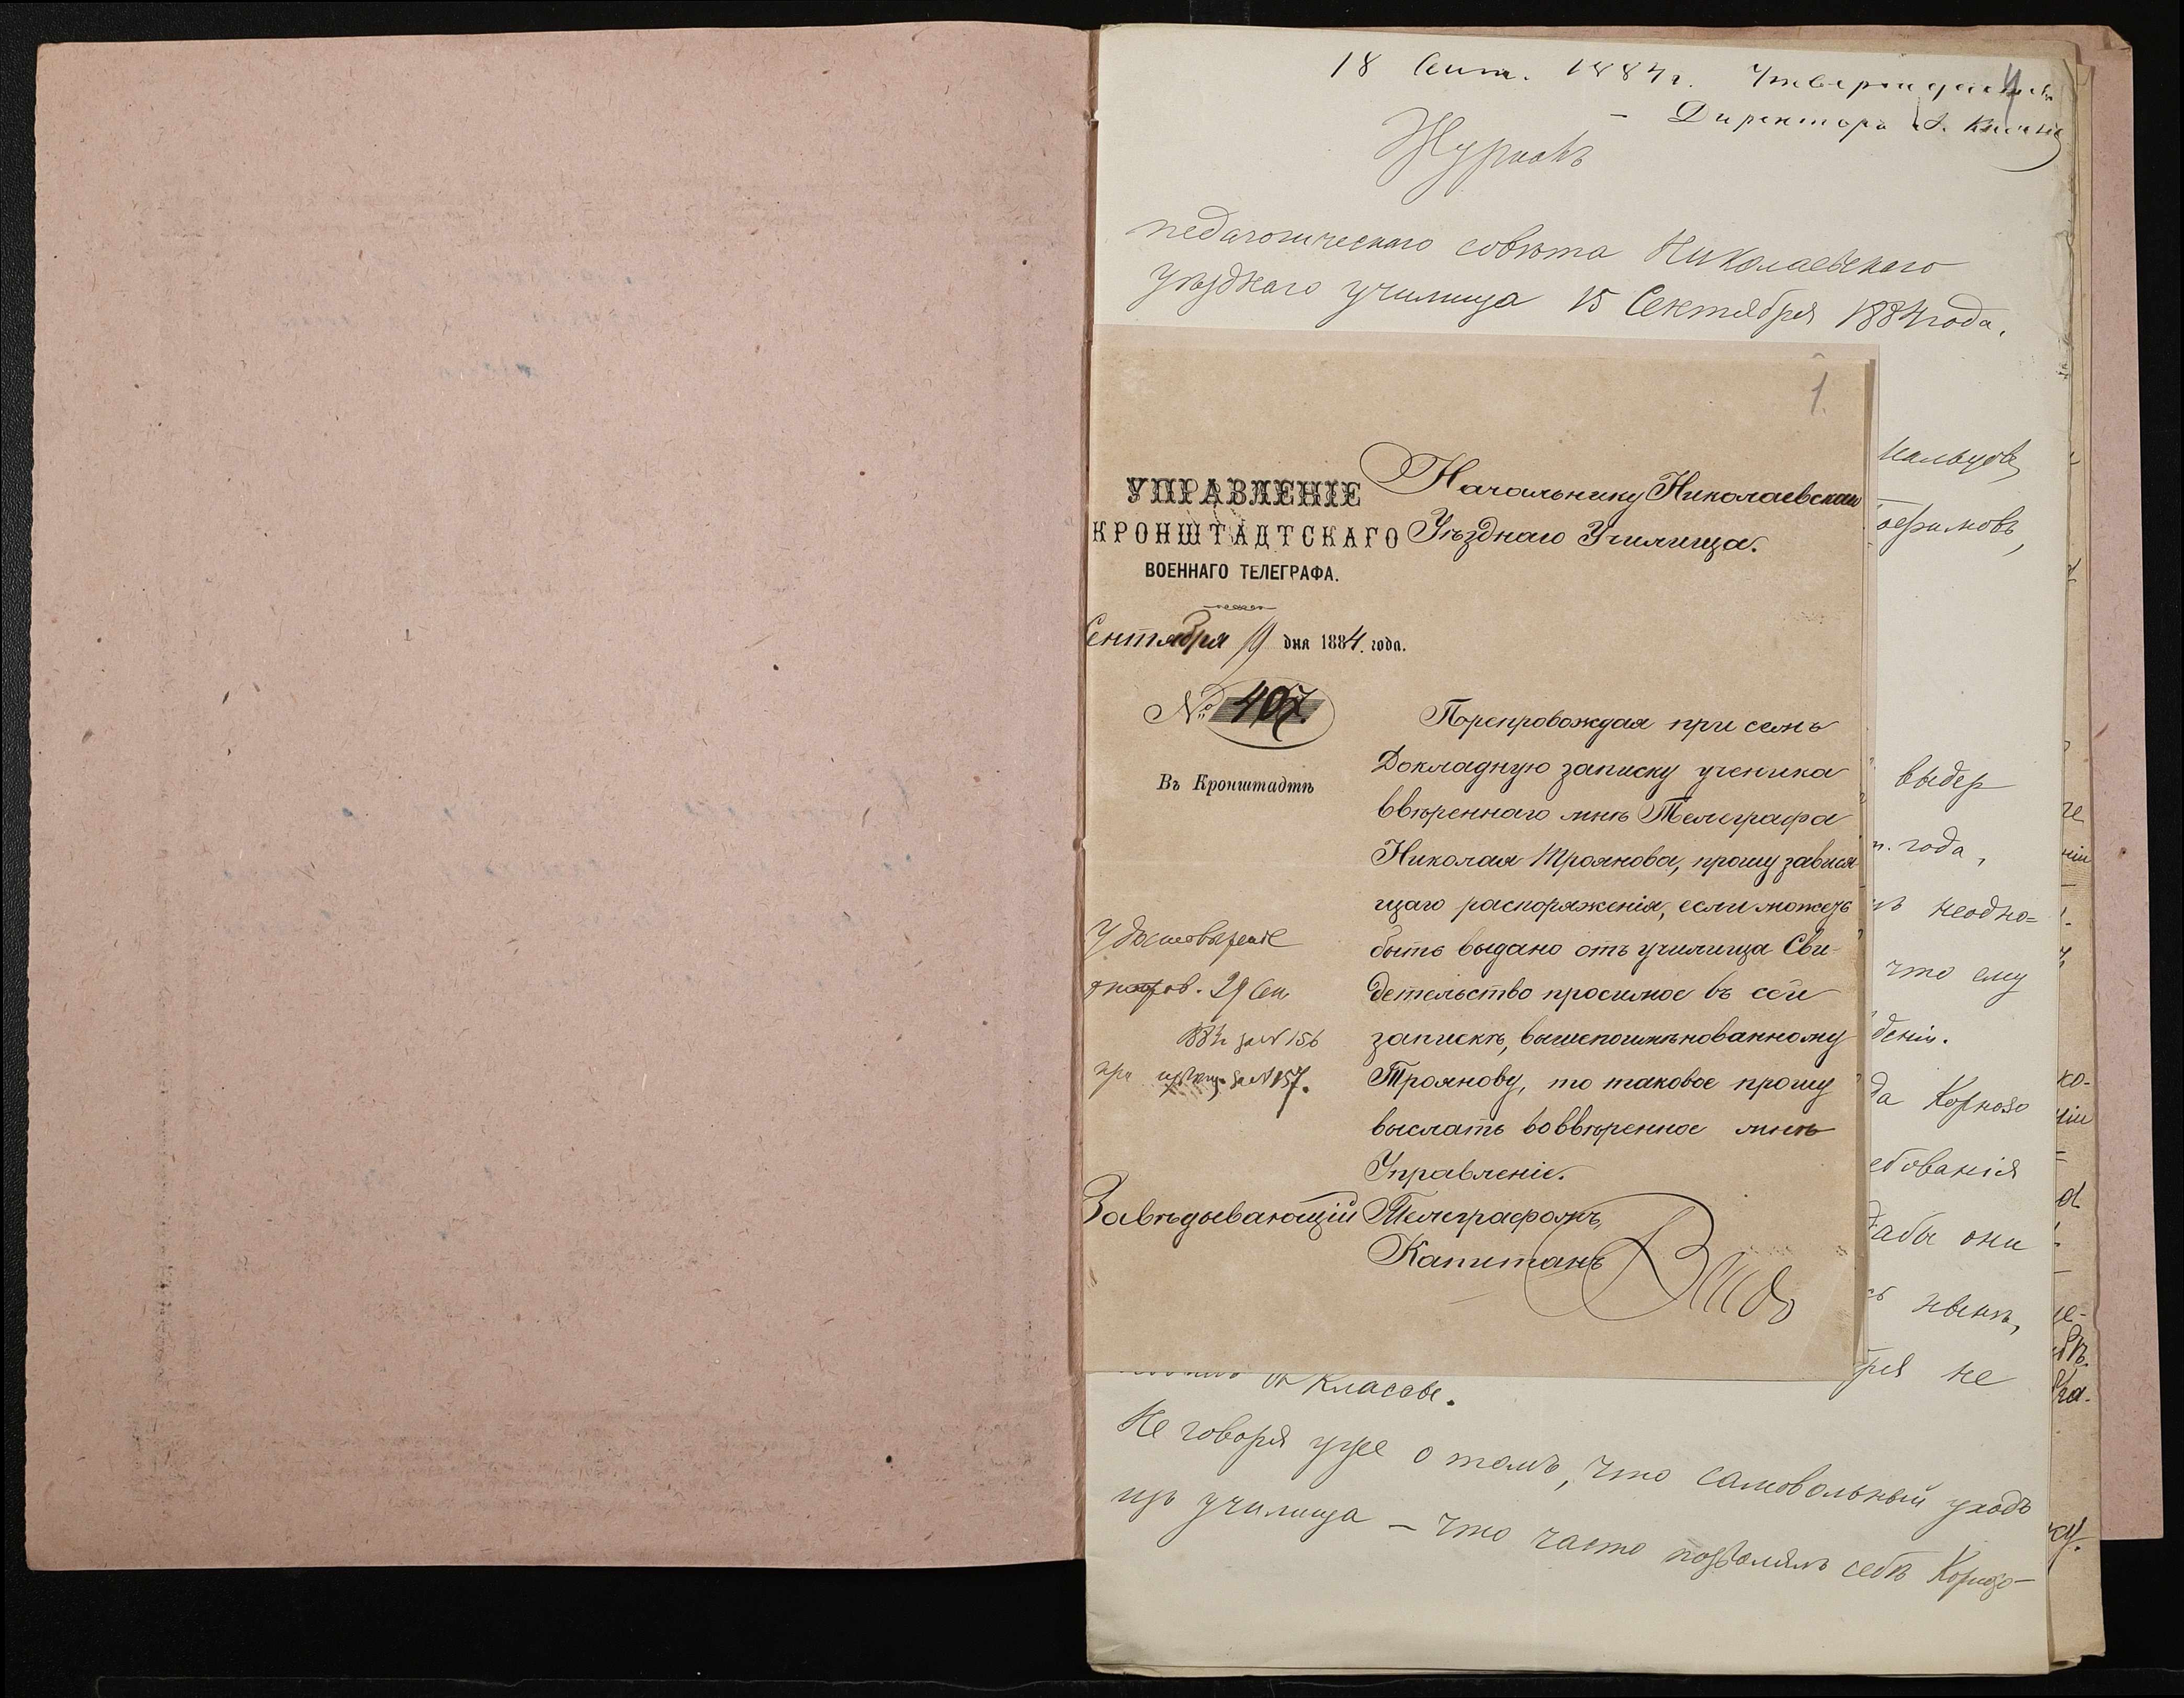 18 Сент. 1884 г. Утверждается
Директоръ
Журналъ
педагогическаго совѣта Николаевскаго
уѣзднаго училища 15 Сентября 1884 года.
1.
УПРАВЛЕНІЕ
КРОНШТАДТСКАГО
ВОЕННАГО ТЕЛЕГРАФА.
Сентября 19 дня 1884. года.
№ 407
Въ Кронштадтѣ
Начальнику Николаевскаго
Уѣзднаго Училища.
Препровождая при семъ
Докладную записку ученика
ввѣреннаго мнѣ Телеграфа
Николая Троянова, прошу завися-
щаго распоряженія, если можетъ
быть выдано отъ училища Сви-
детельство просимое въ сей
запискѣ, вышепоимѣнованному
Троянову, то таковое прошу
выслать во ввѣренное мнѣ
Управленіе.
Завѣдывающій Телеграфомъ,
Капитанъ
Удостовѣреніе
отправ. 29 Сен.
884 за № 156
при за № 157.
выдер
года,
неодно=
что ему
деніи.
да Корнозо
ебованія
они
не
классы.
Не говоря уже о томъ, что самовольный уходъ
изъ училища – что часто позволялъ себѣ Корнозо-